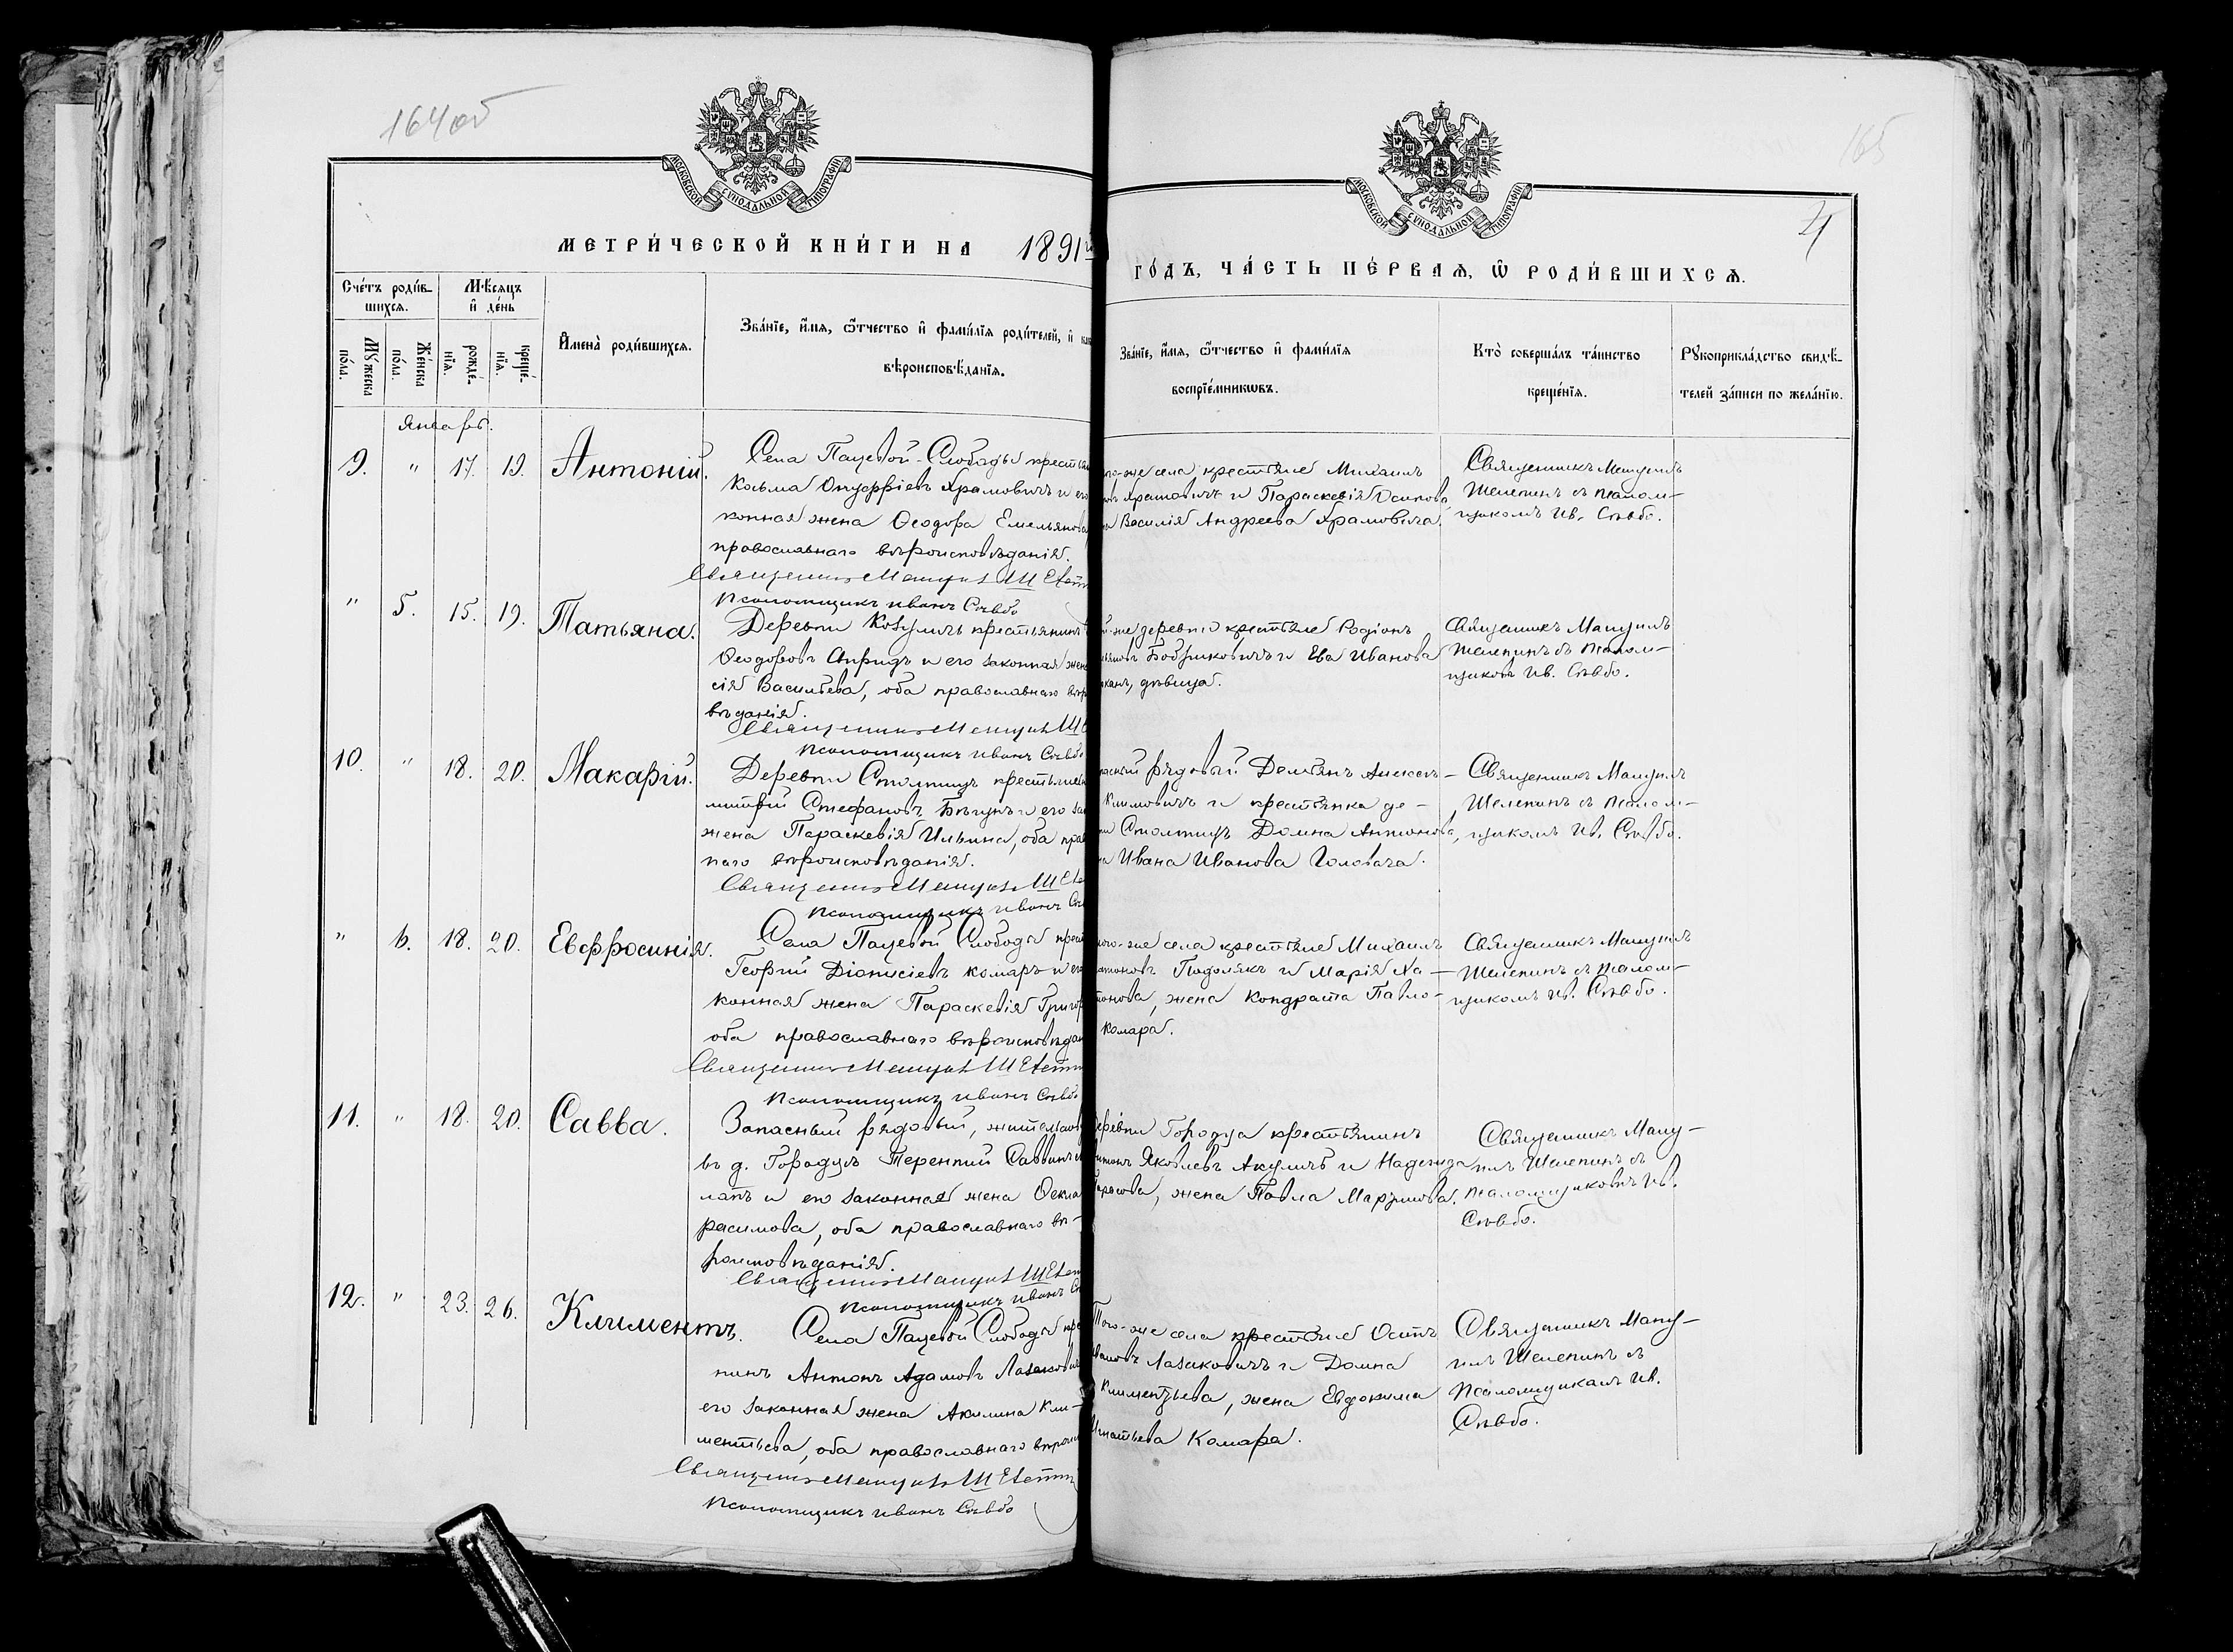 164об
165
4
МОСКОВСКОЙ СѴНОДАЛЬНОЙ ТИПОГРАФІИ
МОСКОВСКОЙ СѴНОДАЛЬНОЙ ТИПОГРАФІИ
МЕТРИ́ЧЕСКОЙ КНИ́ГИ НА 1891
ГО́ДЪ, ЧА́СТЬ ПЕ́РВАѦ, Ѡ҆ РОДИ́ВШИХСѦ.
Сче́тъ роди́в-
шихсѧ.
Мѣ́сяцъ
и҆ де́нь
Мꙋ́жеска
по́ла.
Же́нска
по́ла.
рожде́-
нїѧ.
креще́-
нїѧ.
И҆мена̀ роди́вшихсѧ.
Зва́нїе, и҆́мѧ, ѻ҆́тчество и҆ фами́лїѧ роди́телей, и҆
вѣроисповѣ́данїѧ.
Зва́нїе, и҆́мѧ, ѻ҆́тчество и҆ фами́лїѧ
воспрїе́мникѡвъ.
Кто̀ соверша́лъ та́инство
креще́нїѧ.
Рꙋкоприкла́дство свидѣ́-
телей за́писи по жела́нїю.
Январь.
9. " 17. 19. Антоній.
Села Пацевой-Слободы крестьян
Козьма Онуфріевъ Храмовичъ и его
конная жена Ѳеодора Емельянова
православнаго вѣроисповѣданія.
Священникъ Мануилъ Шелепин
Псаломщикъ Иванъ Сѣвбо
го-же села крестьяне Михаилъ
Храмовичъ и Параскевія Осипова
Василія Андреева Храмовича.
Священникъ Мануилъ
Шелепинъ съ псалом-
щикомъ Ив. Сѣвбо.
" 5. 15. 19. Татьяна.
Деревни Козуличъ крестьянинъ
Ѳеодоровъ Спридъ и его законная жен
сія Васильева, оба православнаго вѣр
вѣданія.
Священникъ Мануилъ Ш
Псаломщикъ Иванъ Сѣвбо
же деревни крестьяне Родіонъ
Бобриковичъ и Ева Иванова
дѣвица.
Священникъ Мануилъ
Шелепинъ съ псалом-
щикомъ Ив. Сѣвбо.
10. " 18. 20. Макарій.
Деревни Столпищъ крестьянин
митрій Стефановъ Бѣгунъ и его за
жена Параскевія Ильина, оба прав
наго вѣроисповѣданія.
Священникъ Мануилъ Шеле
Псаломщикъ Иванъ Сѣ
рядовый Деміанъ Алексѣ-
Климовичъ и крестьянка де-
Столпищъ Домна Антонова,
Ивана Иванова Головача.
Священникъ Мануилъ
Шелепинъ съ псалом-
щикомъ Ив. Сѣвбо.
" 6. 18. 20. Евфросинія.
Села Пацевой Слободы крест
Георгій Діонисіевъ Комаръ и его
конная жена Параскевія Григор
оба православнаго вѣроисповѣдан
Священникъ Мануилъ Шелепин
Псаломщикъ Иванъ Сѣвбо
того-же села крестьяне Михаилъ
Подолякъ и Марія Ха-
тонова, жена Кондрата Павло-
Комара.
Священникъ Мануилъ
Шелепинъ съ псалом-
щикомъ Ив. Сѣвбо.
11. " 18. 20. Савва.
Запасный рядовый, жительств
въ д. Городцѣ Терентій Саввинъ
латъ и его законная жена Ѳекла
расимова, оба православнаго вѣ-
роисповѣданія.
Священникъ Мануилъ Шелеп
Псаломщикъ Иванъ Сѣ
деревни Городца крестьянинъ
Яковлевъ Акуличъ и Надежда
Тарасова, жена Павла Марунова.
Священникъ Ману-
илъ Шелепинъ съ
псаломщикомъ Ив.
Сѣвбо.
12. " 23. 26. Климентъ.
Села Пацевой Слободы кре
нинъ Антонъ Адамовъ Лазакович
его законная жена Акилина Кли-
ментьева, оба православнаго вѣрои
Священникъ Мануилъ Шелепин
Псаломщикъ Иванъ Сѣвбо
Того-же села крестьяне Осипъ
Лазаковичъ и Домна
Климентьева, жена Евдокима
Игнатьева Комара.
Священникъ Ману-
илъ Шелепинъ съ
псаломщикомъ Ив.
Сѣвбо.